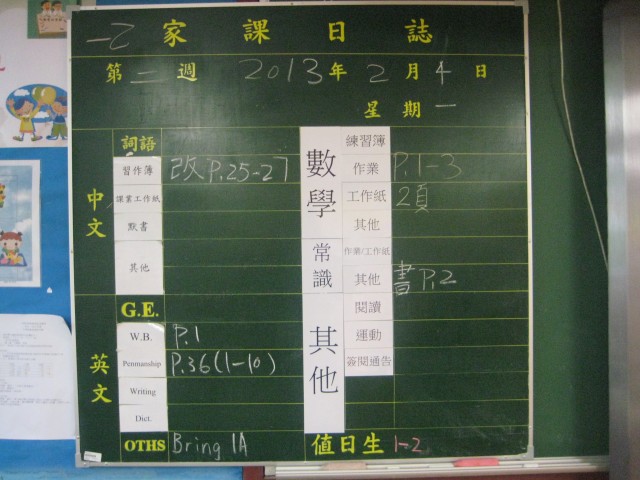 一乙 家課日誌
第二週 2013年2月4日
星期一
中文
詞語
習作簿 改P.25-27
課業工作紙
默書
其他
英文
G.E.
W.B. P.1
Penmanship P.36(1-10)
Writing
Dict.
OTHS Bring 1A
數學
練習簿
作業 P.1-3
工作紙 2頁
其他
常識
作業/工作紙
其他 書P.2
其他
閱讀
運動
簽閱通告
值日生 1-2